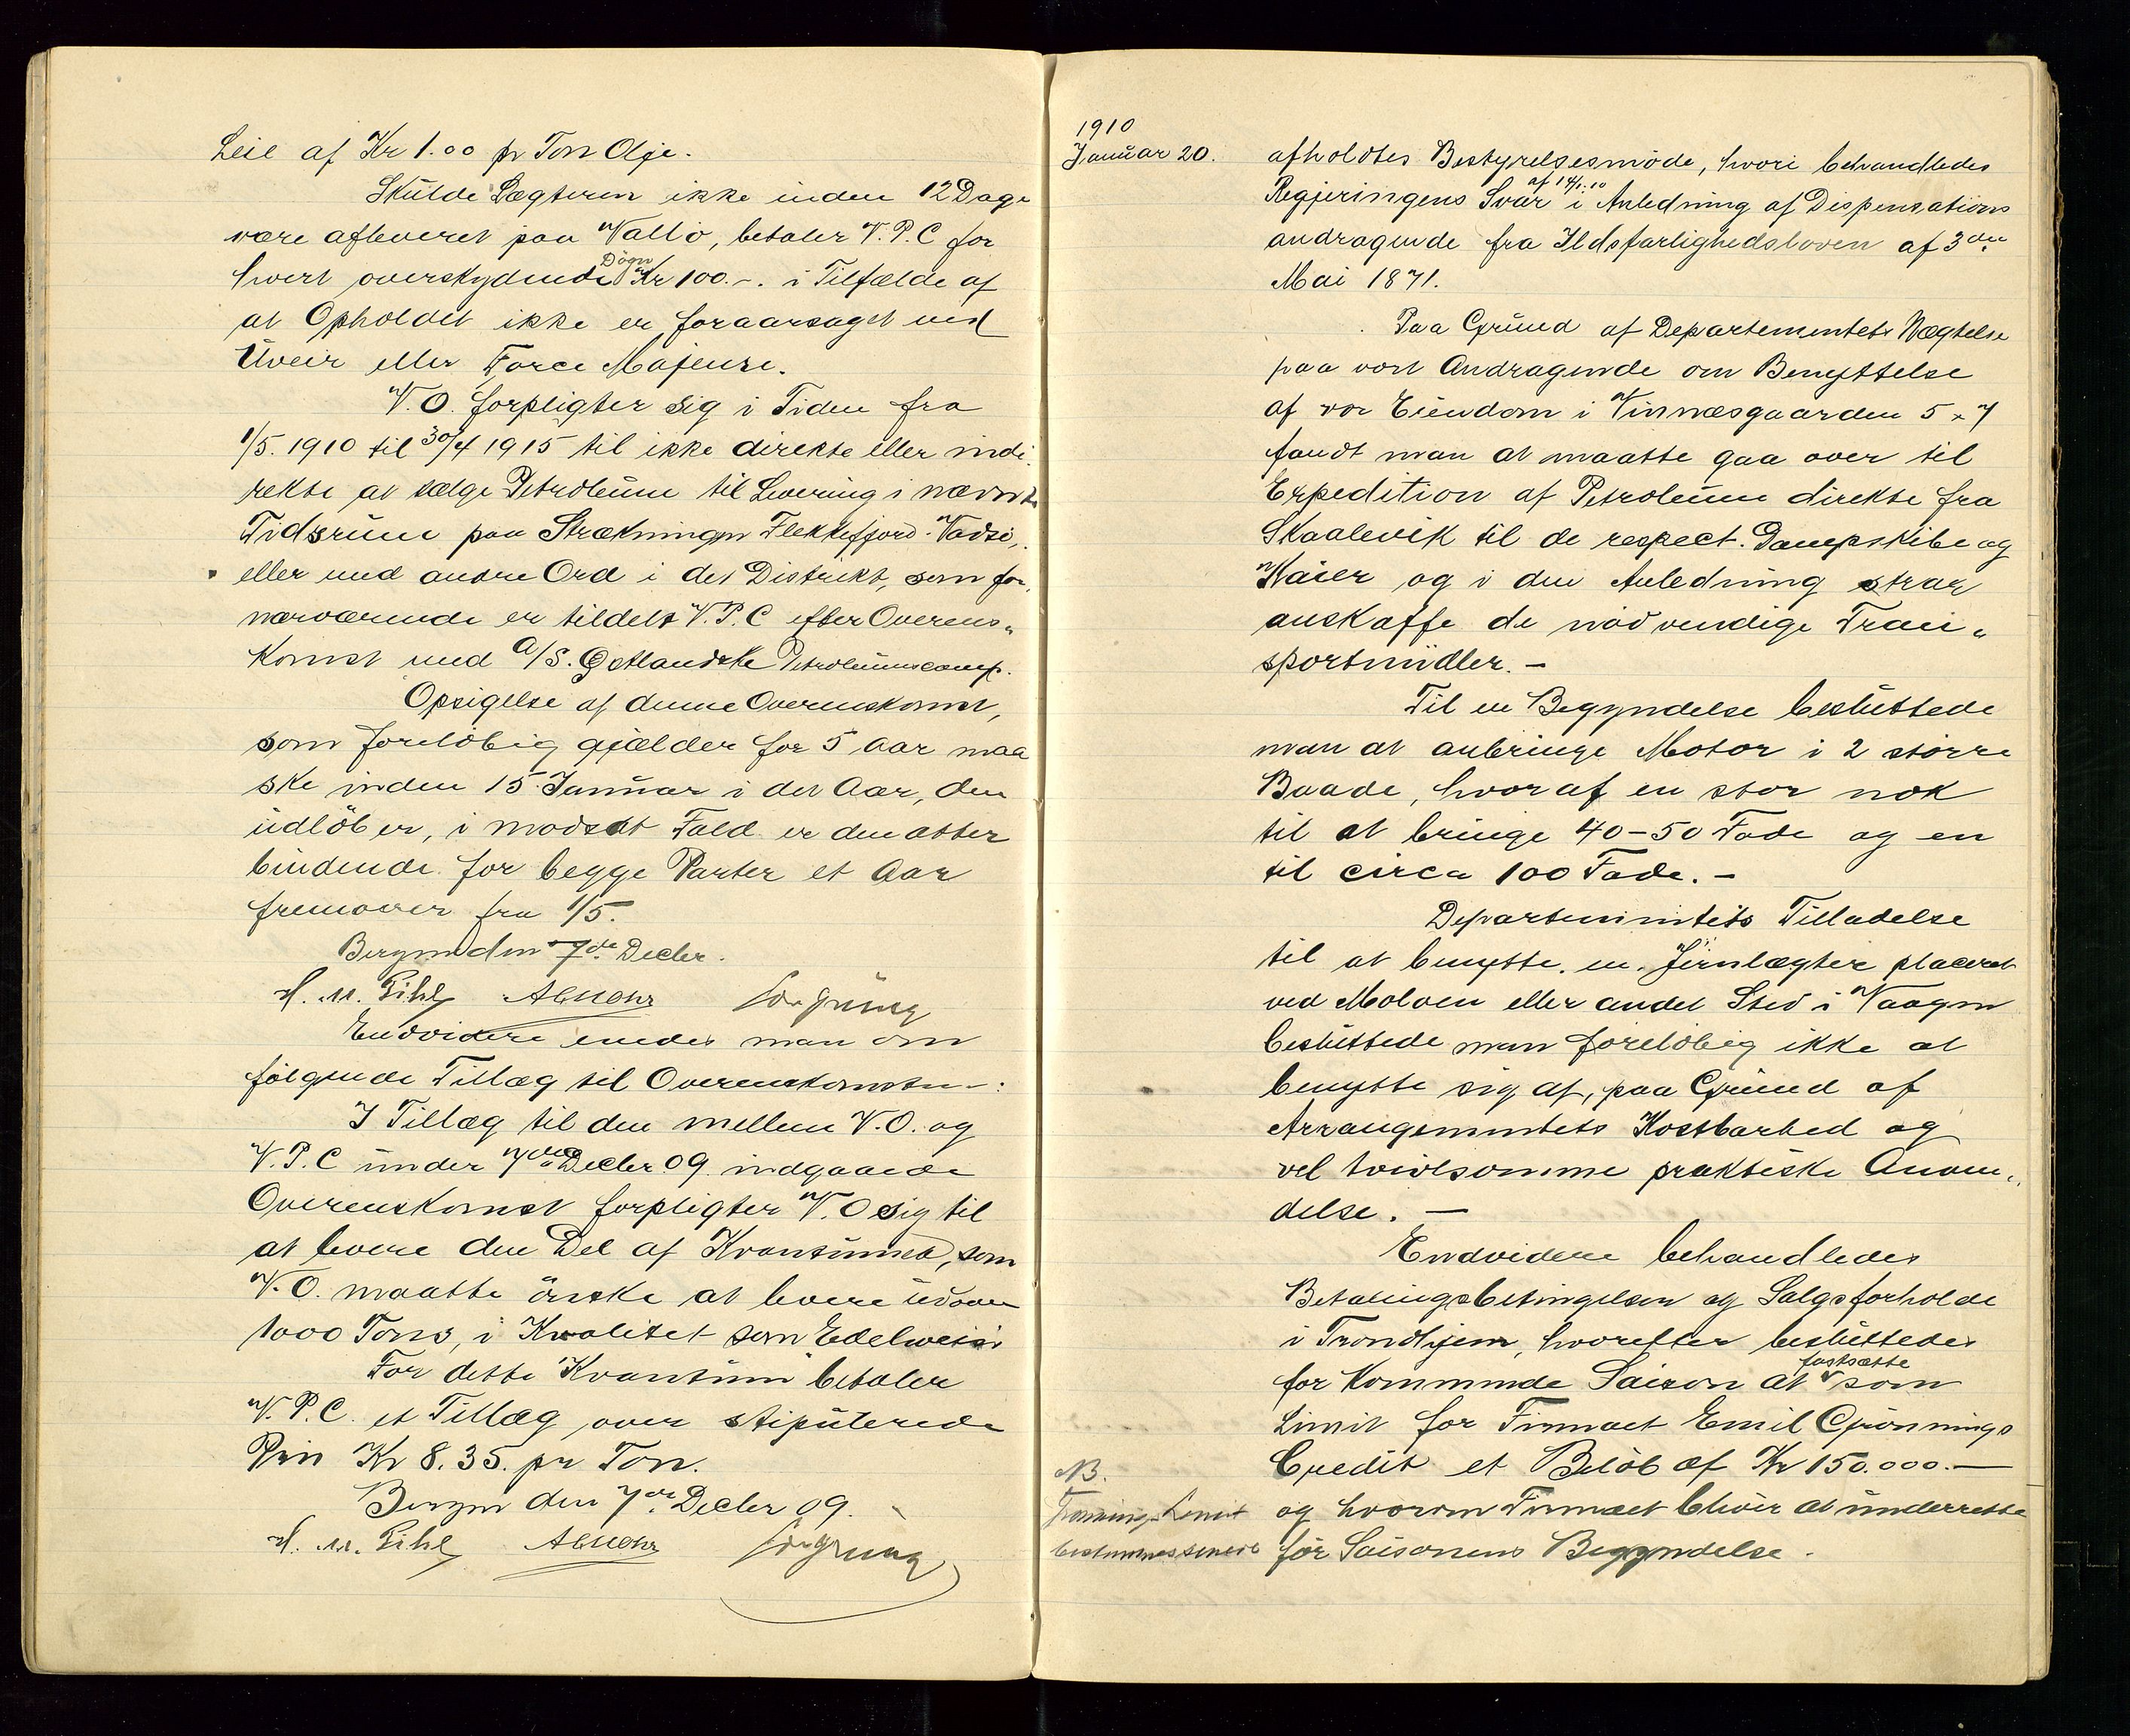 Leie af Kr 1.00 pr Ton Olje.
Skulde Lægteren ikke inden 12 Dage
være afleveret paa Vallö, betaler V.P.C for
hvert overskydende Dögn Kr 100.-. i Tilfælde af
at Opholdet ikke er foraarsaget ved
Uveir eller Force Majeure.
V.O. forpligter sig i Tiden fra
1/5. 1910 til 30/4 1915 til ikke direkte eller indi-
rekte at sælge Petroleum til Levering i nævnte
Tidsrum paa Strækningen Flekkefjord-Vadsö,
eller med andre Ord i det Distrikt, som for
nærværende er tildelt V.P.C efter Overens-
komst med A/S. Østlandske Petroleumscomp.
Opsigelse af denne Overenskomst,
som foreløbig gjælder for 5 Aar maa
ske inden 15. Januar i det Aar, den
udlöber, i modsat Fald er den atter
bindende for begge Parter et Aar
fremover fra 1/5.
Bergen den 7de Decbr.
H. M. Gihl
Endvidere enedes man om
følgende Tillæg til Overenskomsten-:
I Tillæg til den mellem V.O. og
V.P.C under 7de Decbr 09 indgaaede
Overenskomst forpligter V.O sig til
at levere den Del af Kvantumet, som
V.O. maatte önske at levere udover
1000 Tons, i Kvalitet som Edelweiss
For dette Kvantum betaler
V.P.C. et Tillæg over stipulerede
Pris Kr 8.35. pr Ton.
Bergen den 7de Decbr 09.
H. M. Gihl
1910
Januar 20. afholdtes Bestyrelsesmöde, hvori behandledes
Regjeringens Svar af 14/1.10 i Anledning af Dispensations
andragende fra Ildsfarlighedsloven af 3die
Mai 1871.
Paa Grund af Departementets Nægtelse
paa vort Andragende om Benyttelse
af vor Eiendom i Vinnæsgaarden 5 x 7
fandt man at maatte gaa over til
Expedition af Petroleum direkte fra
Skaalevik til de respect. Dampskibe og
Kaier og i den Anledning strax
anskaffe de nödvendige Tran-
sportmidler. -
Til en Begyndelse besluttede
man at anbringe Motor i 2 större
Baade, hvoraf en stor nok
til at bringe 40-50 Fade og en
til circa 100 Fade. -
Departementets Tilladelse
til at benytte en Jernlægter placeret
ved Moloen eller andet Sted i Vaagen
besluttede man foreløbig ikke at
benytte sig af, paa Grund af
Arrangementets Kostbarhed og
vel tvivlsomme praktiske Anven-
delse. -
Endvidere behandledes
Betalingsbetingelser og Salgsforholde
i Trondhjem, hvorefter besluttedes
for kommende Saison at fastsætte som
Limit for Firmaet Emil Grönnings
Credit et Belöb af Kr 150.000.-
og hvorom Firmaet bliver at underrette
för Saisonens Begyndelse.
NB.
Limit
bestemmes senere